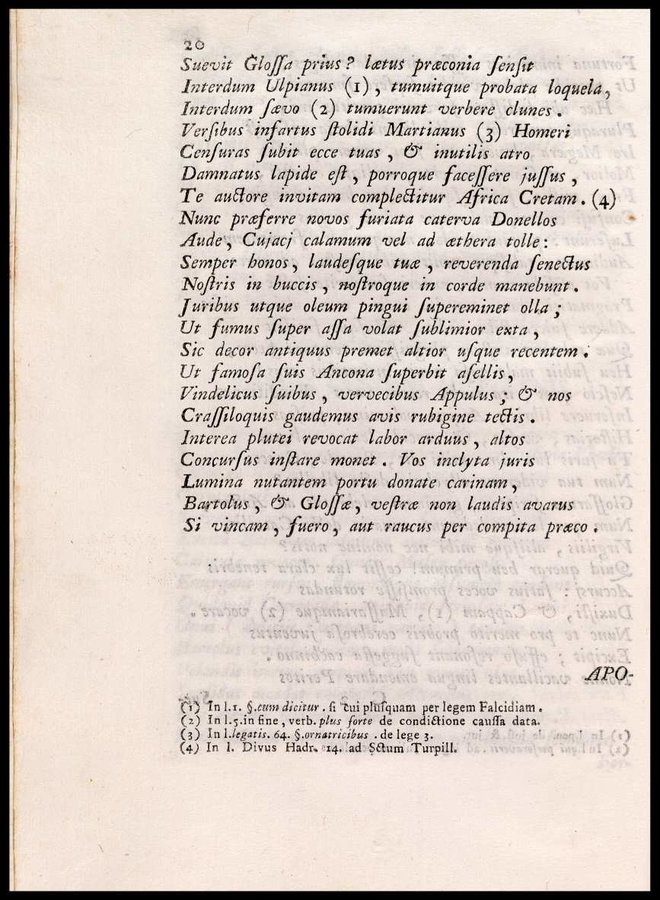 20
Suevit Gloſſa prius? lætus præconia ſenſit
Interdum Ulpianus (1), tumuitque probata loquela,
Interdum ſævo (2) tumuerunt verbere clunes.
Verſibus infartus ſtolidi Martianus (3) Homeri
Cenſuras ſubit ecce tuas, & inutilis atro
Damnatus lapide eſt, porroque faceſſere juſſus,
Te auctore invitam complectitur Africa Cretam. (4)
Nunc præferre novos furiata caterva Donellos
Aude, Cujacj calamum vel ad æthera tolle:
Semper honos, laudeſque tuæ, reverenda ſenectus
Noſtris in buccis, noſtroque in corde manebunt.
Juribus utque oleum pingui ſupereminet olla;
Ut fumus ſuper aſſa volat ſublimior exta,
Sic decor antiquus premet altior uſque recentem.
Ut famoſa ſuis Ancona ſuperbit aſellis,
Vindelicus ſuibus, vervecibus Appulus; & nos
Craſſiloquis gaudemus avis rubigine tectis.
Interea plutei revocat labor arduus, altos
Concurſus inſtare monet. Vos inclyta juris
Lumina nutantem portu donate carinam,
Bartolus, & Gloſſæ, veſtræ non laudis avarus
Si vincam, fuero, aut raucus per compita præco.
APO-
(1) In l.1. §.cum dicitur. ſi cui pluſquam per legem Falcidiam.
(2) In l.5.in fine, verb. plus forte de condictione cauſſa data.
(3) In l.legatis. 64. §.ornatricibus. de lege 3.
(4) In l. Divus Hadr. 14. ad Sctum Turpill.